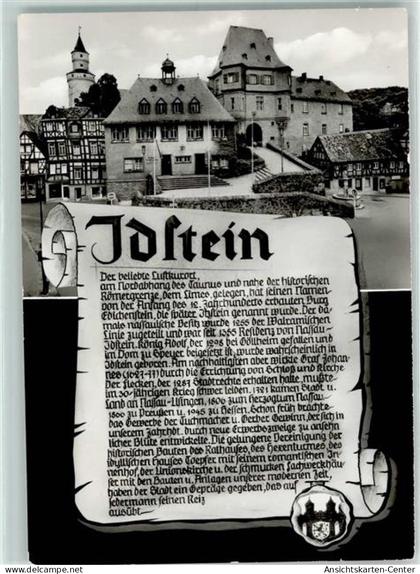 Idstein
Der beliebte Luftkurort,
am Nordabhang des Taunus und nahe der historischen
Römergrenze, dem Limes, gelegen, hat seinen Namen
von der Anfang des 12. Jahrhunderts erbauten Burg
Edichenstein, die später Idstein genannt wurde. Der da-
mals nassauische Besitz wurde 1255 der Walramischen
Linie zugeteilt und war seit 1255 Residenz von Nassau-
Idstein. König Adolf, der 1298 bei Göllheim gefallen und
im Dom zu Speyer beigesetzt ist, wurde wahrscheinlich in
Idstein geboren. Am nachhaltigsten aber wirkte Graf Johan-
nes (1627-77) durch die Errichtung von Schloß und Kirche.
Der Flecken, der 1287 Stadtrechte erhalten hatte, mußte
im 30-jährigen Krieg schwer leiden. 1721 kamen Stadt u.
Land an Nassau-Usingen, 1806 zum Herzogtum Nassau,
1866 zu Preußen u. 1945 zu Hessen. Schon früh brachte
das Gewerbe der Tuchmacher u. Gerber Gewinn, der sich in
unserem Jahrhdt. durch neue Erwerbszweige zu ansehn-
licher Blüte entwickelte. Die gelungene Vereinigung der
historischen Bauten des Rathauses, des Hexenturmes, des
idyllischen Hauses Toepfer mit seinem romantischen In-
nenhof, der Unionskirche u. der schmucken Fachwerkhäu-
ser mit den Bauten u. Anlagen unserer modernen Zeit,
haben der Stadt ein Gepräge gegeben, das auf
jedermann seinen Reiz
ausübt
Ansichtskarten-Center